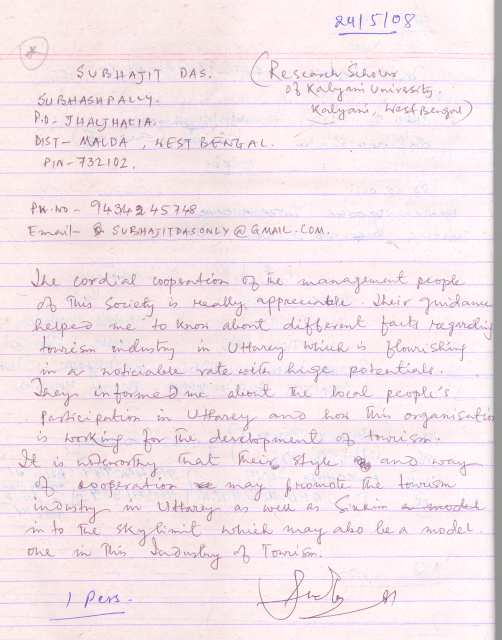 24/5/08
SUBHAJIT DAS. (Research Scholar
of Kalyani University.
SUBHASHPALLY. Kalyani, West Bengal)
P.O- JHALJHALIA
DIST- MALDA, WEST BENGAL.
PIN- 732102.
PH.NO- 9434245748
Email- SUBHAJITDASONLY@GMAIL.COM.
The cordial cooperation of the management people
of This Society is really appreciable. Their guidance
helped me to know about different facts regarding
tourism industry in Uttarey which is flourishing
in a noticiable rate with huge potentials.
They informed me about the local people's
Participation in Uttarey and how this organisation
is working for the development of tourism.
It is noteworthy that their style and way
of cooperation may promote the tourism
industry in Uttarey as well as Sikkim
in to the sky limit which may also be a model
one in This Industry of Tourism.
1 Pers.